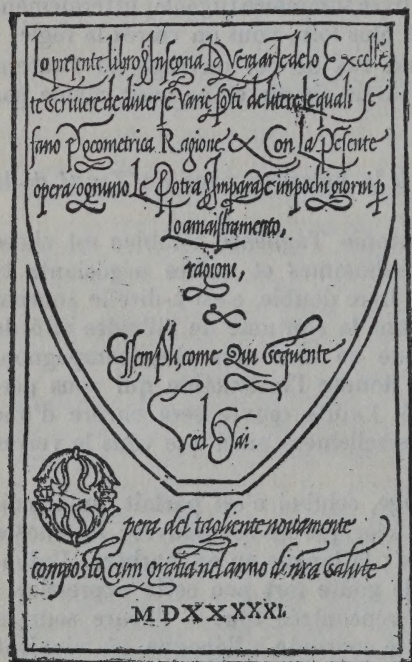 Lo presente libro Insegna La Vera arte delo Excellē
te scrivere de diverse varie sorti de litere lequali se
fano p Geometrica Ragione & Con La Presente
opera ognuno Le Potra Imparare in pochi giorni p
lo amaistramento,
ragioni,
Essempli, come Qui sequente
vedrai.
Opera del tagliente novamente
composto cum gratia nel anno di nr̄a salute
MDXXXXXI